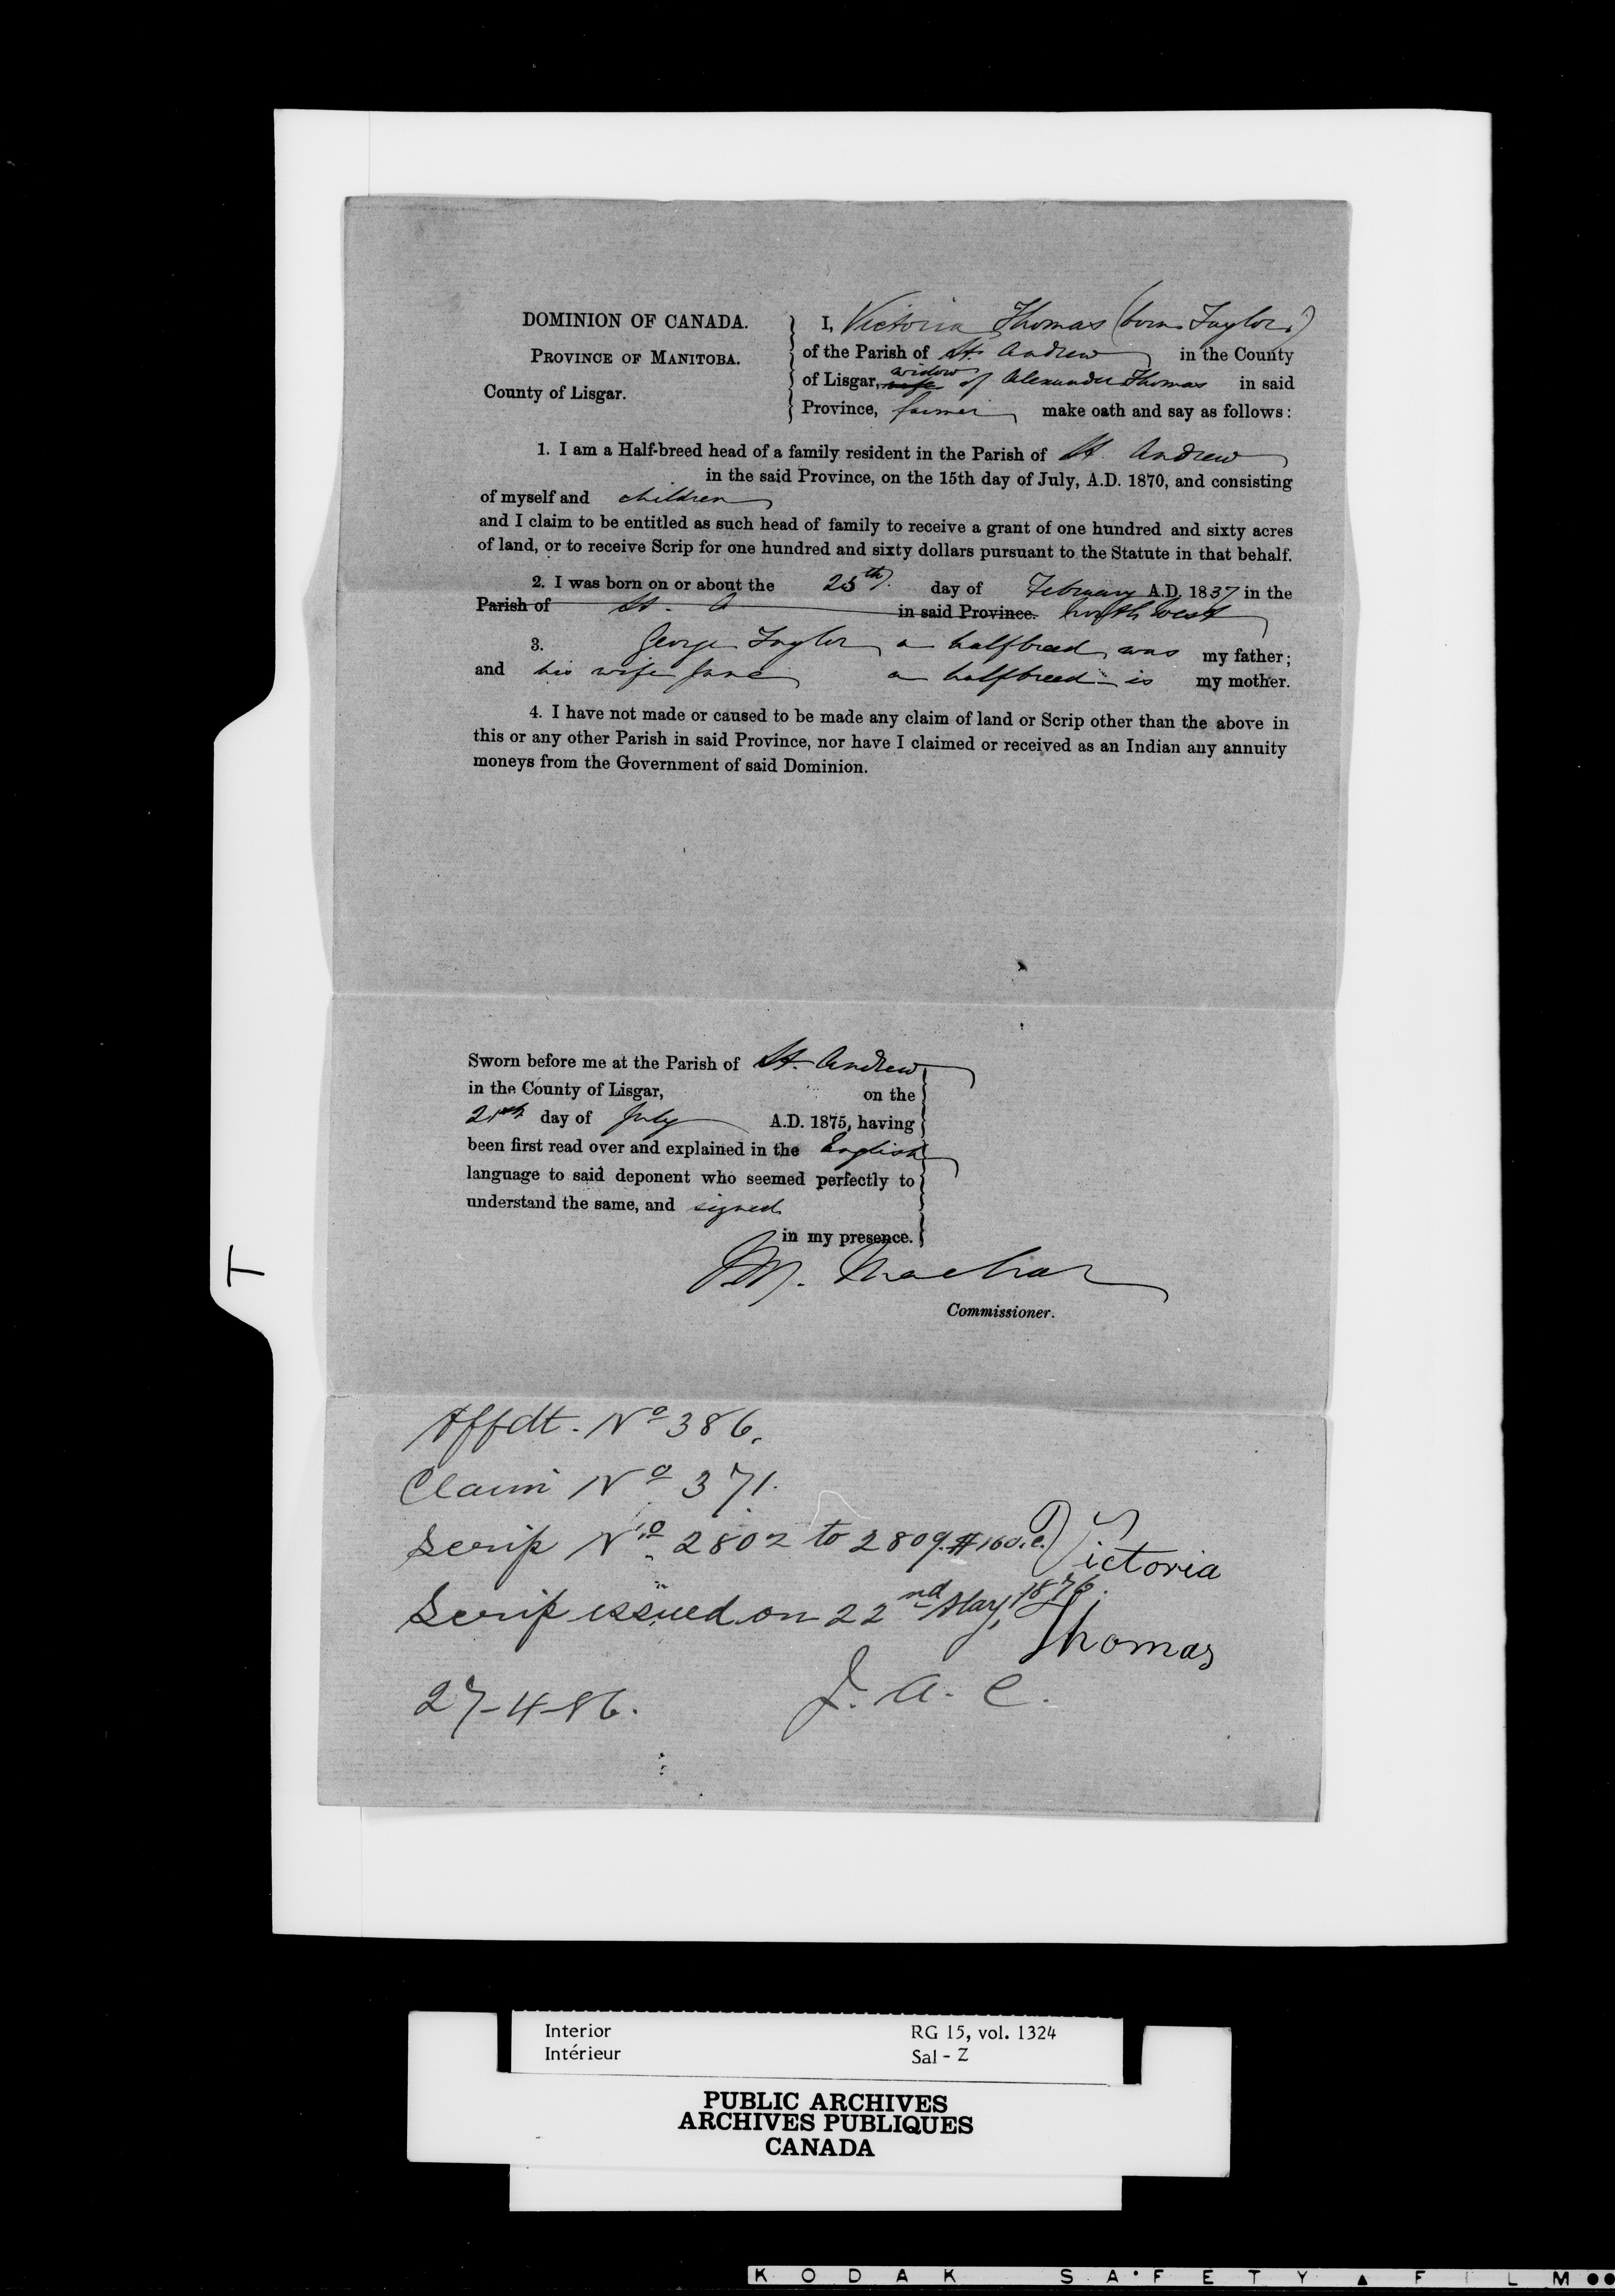 DOMINION OF CANADA.
PROVINCE OF MANITOBA.
County of Lisgar.
I, Victoria Thomas (born Taylor.)
of the Parish of St. Andrew in the County
of Lisgar, wife widow of Alexander Thomas in said
Province, farmer make oath and say as follows:
1. I am a Half-breed head of a family resident in the Parish of St. Andrew
in the said Province, on the 15th day of July, A.D. 1870, and consisting
of myself and children
and I claim to be entitled as such head of family to receive a grant of one hundred and sixty acres
of land, or to receive Scrip for one hundred and sixty dollars pursuant to the Statute in that behalf.
2. I was born on or about the 25th day of February A.D. 1837 in the
Parish of St. A in said Province. North West
3. George Taylor a halfbreed was my father;
and his wife Jane a halfbreed is my mother.
4. I have not made or caused to be made any claim of land or Scrip other than the above in
this or any other Parish in said Province, nor have I claimed or received as an Indian any annuity
moneys from the Government of said Dominion.
Sworn before me at the Parish of St. Andrew
in the County of Lisgar, on the
day of July A.D. 1875, having
been first read over and explained in the English
language to said deponent who seemed perfectly to
understand the same, and signed
in my presence.
J.M. Machar
Commissioner.
T
Affdt. No 386.
Claim No 371.
Scrip No. 2802 to 2809. $160.
Victoria
Scrip issued on 22nd May, 1876.
Thomas
27-4-86. J. A. C.
Interior RG 15, vol. 1324
Intérieur Sal - Z
PUBLIC ARCHIVES
ARCHIVES PUBLIQUES
CANADA
KODAK SAFETY FILM